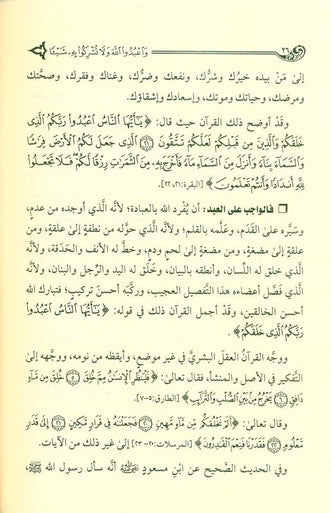 ٢٦ وَاعْبُدُوا اللَّهَ وَلَا تُشْرِكُوا بِهِ شَيْئًا
إلى مَنْ بيده خيرُك وشرُّك، ونفعك وضرُّك، وغناك وفقرك، وصحَّتك
ومرضك، وحياتك وموتك، وإسعادك وإشقاؤك.
وقَدْ أوضح ذلك القرآن حيث قال: ﴿ يَٰٓأَيُّهَا النَّاسُ اعْبُدُوا رَبَّكُمُ الَّذِي
خَلَقَكُمْ وَالَّذِينَ مِن قَبْلِكُمْ لَعَلَّكُمْ تَتَّقُونَ ۝٢١ الَّذِي جَعَلَ لَكُمُ الْأَرْضَ فِرَٰشًا
وَالسَّمَآءَ بِنَآءً وَأَنزَلَ مِنَ السَّمَآءِ مَآءً فَأَخْرَجَ بِهِۦ مِنَ الثَّمَرَٰتِ رِزْقًا لَّكُمْ فَلَا تَجْعَلُوا
لِلَّهِ أَندَادًا وَأَنتُمْ تَعْلَمُونَ ﴾ [البقرة: ٢١، ٢٢].
فالواجب على العبد: أن يُفْرد الله بالعبادة؛ لأنَّه الَّذي أوجده من عدمٍ،
وسيَّره على القَدَم، وعلَّمه بالقلم؛ لأنَّه الَّذي حوَّله من نطفةٍ إلى علقةٍ، ومن
علقةٍ إلى مضغةٍ، ومن مضغةٍ إلى لحمٍ ودمٍ، وخطَّ له الأنف والحَدَقة، ولأنَّه
الَّذي خلق له اللِّسان، وأنطقه بالبيان، وخلق له اليد والرِّجل والبنان، ولأنَّه
الَّذي فصَّل أعضاءه هذا التَّفصيل العجيب، وركَّبه أحسنَ تركيبٍ؛ فتبارك الله
أحسن الخالقين، وقَدْ أجمل القرآن ذلك في قوله: ﴿ يَٰٓأَيُّهَا النَّاسُ اعْبُدُوا
رَبَّكُمُ الَّذِي خَلَقَكُمْ ﴾.
ووجَّه القرآنُ العقلَ البشريَّ في غير موضعٍ، وأيقظه من نومه، ووجَّهه إلى
التَّفكير في الأصل والمنشأ، فقال تعالى: ﴿ فَلْيَنظُرِ الْإِنسَٰنُ مِمَّ خُلِقَ ۝٥ خُلِقَ مِن مَّآءٍ
دَافِقٍ ۝٦ يَخْرُجُ مِنۢ بَيْنِ الصُّلْبِ وَالتَّرَآئِبِ ﴾ [الطارق: ٥-٧].
وقال تعالى: ﴿ أَلَمْ نَخْلُقكُّم مِّن مَّآءٍ مَّهِينٍ ۝٢٠ فَجَعَلْنَٰهُ فِي قَرَارٍ مَّكِينٍ ۝٢١ إِلَىٰ قَدَرٍ
مَّعْلُومٍ ۝٢٢ فَقَدَرْنَا فَنِعْمَ الْقَٰدِرُونَ ﴾ [المرسلات: ٢٠-٢٣] إلى غير ذلك من الآيات.
وفي الحديث الصَّحيح عن ابنِ مسعودٍ ﷺ أنَّه سأل رسول الله ﷺ،